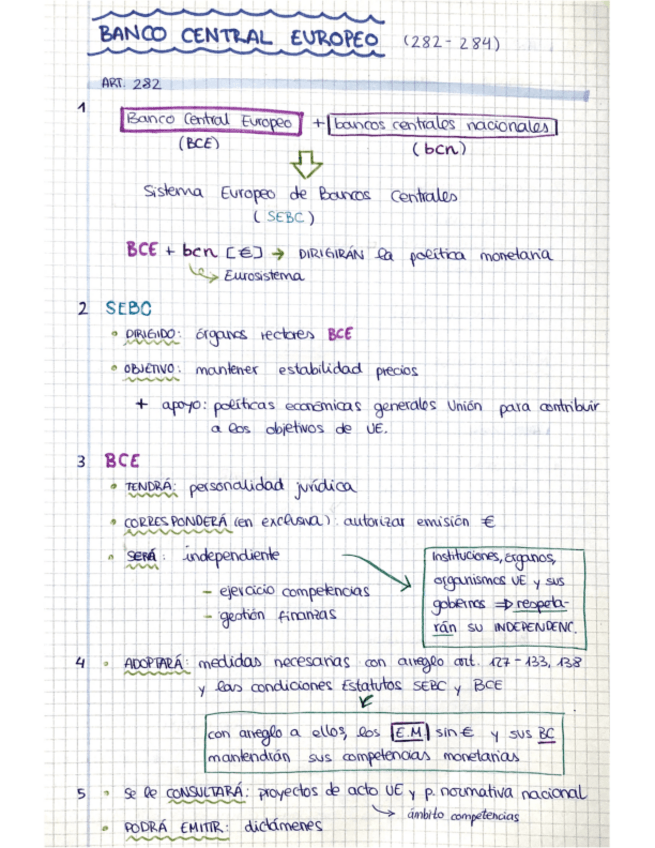 BANCO CENTRAL EUROPEO (282-284)
ART. 282
1
Banco Central Europeo + bancos centrales nacionales
(BCE) (bcn)
Sistema Europeo de Bancos Centrales
(SEBC)
BCE + bcn [€] → DIRIGIRÁN la política monetaria
↳ Eurosistema
2 SEBC
• DIRIGIDO: órganos rectores BCE
• OBJETIVO: mantener estabilidad precios
+ apoyo: políticas económicas generales Unión para contribuir
a los objetivos de UE.
3 BCE
• TENDRÁ: personalidad jurídica
• CORRESPONDERÁ (en exclusiva): autorizar emisión €
• SERÁ: independiente
- ejercicio competencias
- gestión finanzas
Instituciones, órganos,
organismos UE y sus
gobiernos ⇒ respeta-
rán su INDEPENDENC.
4 • ADOPTARÁ: medidas necesarias con arreglo art. 127-133, 138
y las condiciones Estatutos SEBC y BCE
con arreglo a ellos, los E.M sin € y sus BC
mantendrán sus competencias monetarias
5 • Se le CONSULTARÁ: proyectos de acto UE y p. normativa nacional
↳ ámbito competencias
• PODRÁ EMITIR: dictámenes